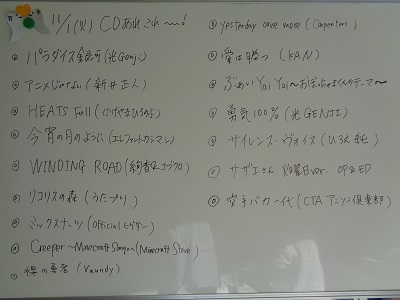 11/1(火) CDあれこれ〜!
パラダイス銀河(光Genji)
アニメじゃない(新井正人)
HEATS Full(かげやまひろのぶ)
今宵の月のように(エレファントカシマシ)
WINDING ROAD(絢香×コブクロ)
リコリスの森(うたプリ)
ミックスナッツ(Official髭男dism)
Creeper 〜Minecraft Song〜(Minecraft Steve)
裸の勇者(Vaundy)
yesterday once more(Carpenters)
愛は勝つ(KAN)
ぶぁいYai Yai〜おぼっちゃまくんのテーマ〜
勇気100%(光GENJI)
サイレンス・ヴォイス(ひろえ純)
サザエさん 火曜日ver. OP&ED
空手バカ一代(CTA アニソン倶楽部)